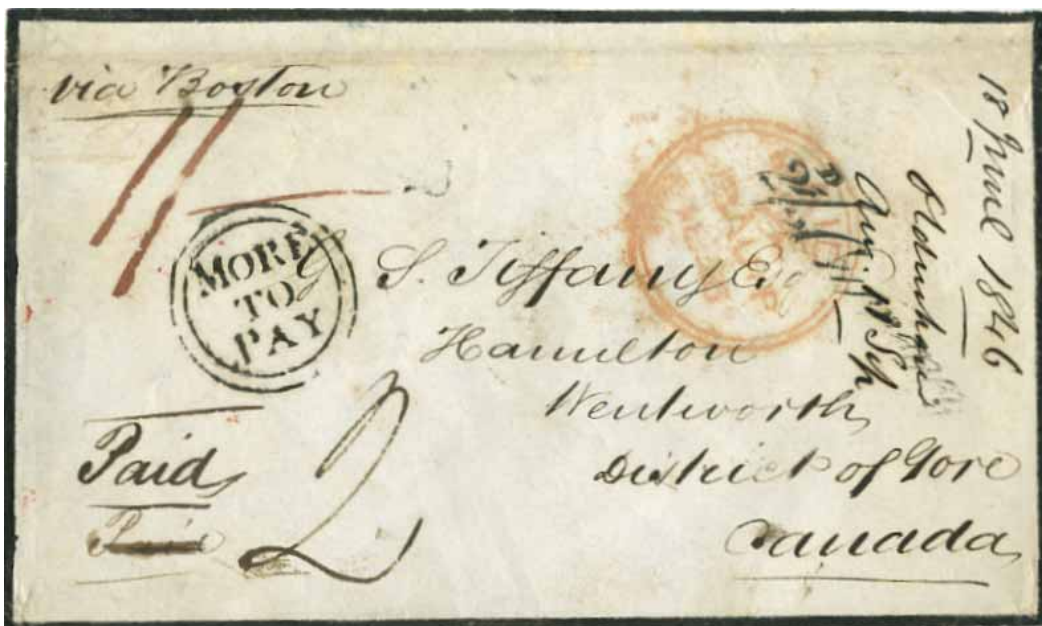 via Boston
MORE
TO
PAY
G. S. Tiffany Esq
Hamilton
Wentworth
District of Gore
Canada
Paid
Paid
2
18 June 1846